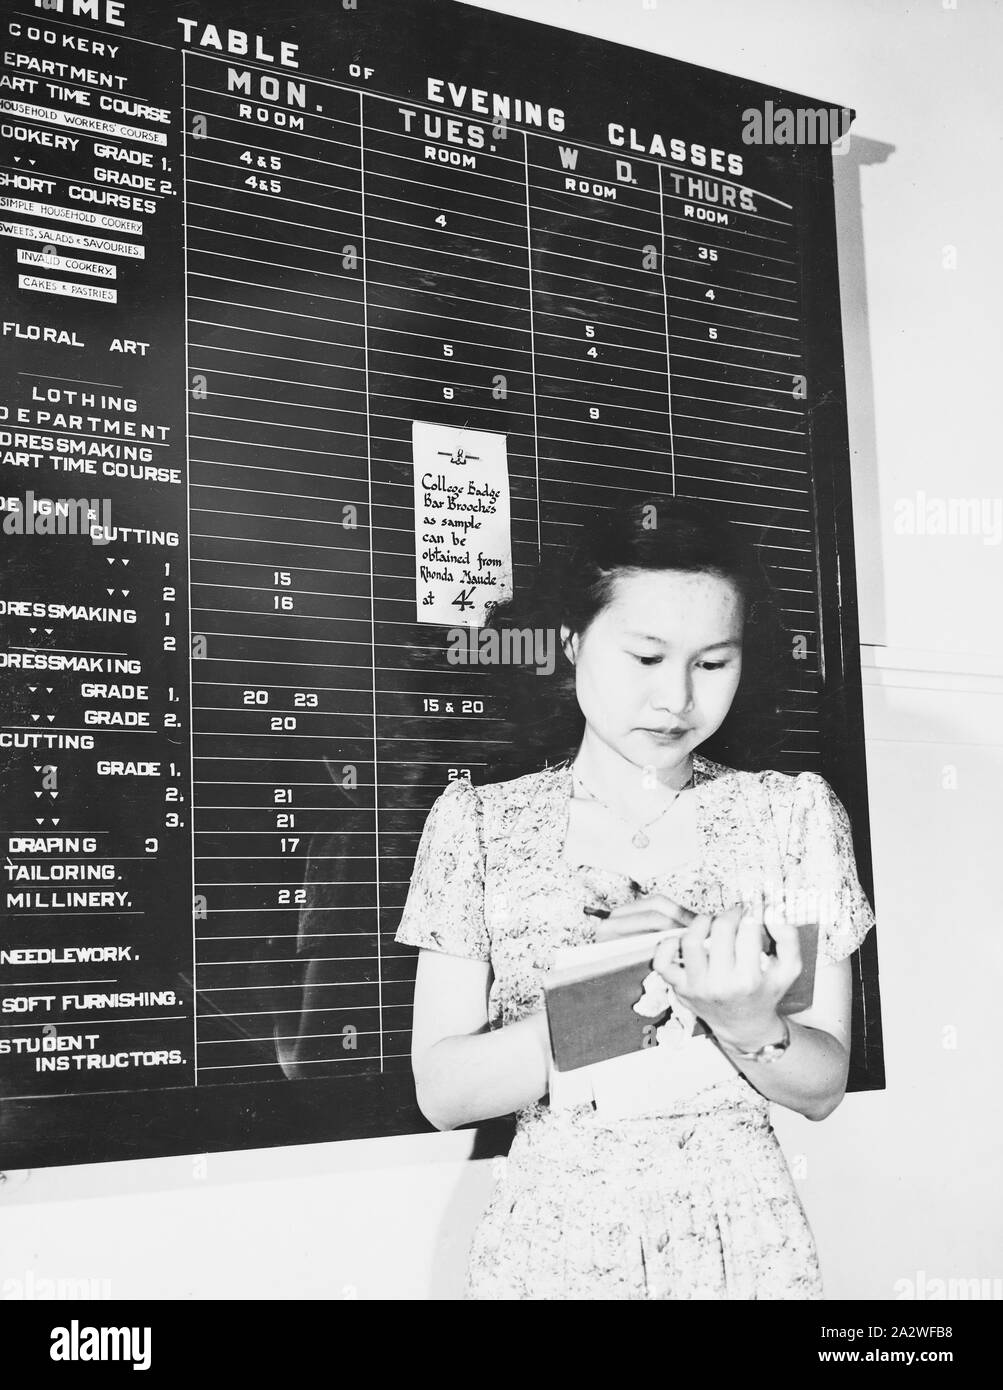 TIME TABLE OF EVENING CLASSES
MON. TUES. W D. THURS.
ROOM ROOM ROOM ROOM
COOKERY
EPARTMENT
ART TIME COURSE
HOUSEHOLD WORKERS' COURSE.
OOKERY GRADE 1. 4&5
" GRADE 2. 4&5
SHORT COURSES 4
SIMPLE HOUSEHOLD COOKERY. 35
SWEETS, SALADS & SAVOURIES.
INVALID COOKERY. 4
CAKES & PASTRIES
5 5
FLORAL ART 5 4
LOTHING 9 9
DEPARTMENT
DRESSMAKING
PART TIME COURSE
DE IGN &
CUTTING
" 1 15
" 2 16
DRESSMAKING 1
" 2
DRESSMAKING
" GRADE 1. 20 23 15 & 20
" GRADE 2. 20
CUTTING
" GRADE 1. 23
" 2. 21
" 3. 21
DRAPING 17
TAILORING.
MILLINERY. 22
NEEDLEWORK.
SOFT FURNISHING.
STUDENT
INSTRUCTORS.
College Badge
Bar Brooches
as sample
can be
obtained from
Rhonda Maude.
at 4/- ea
alamy
alamy
Image ID: 2A2WFB8
www.alamy.com